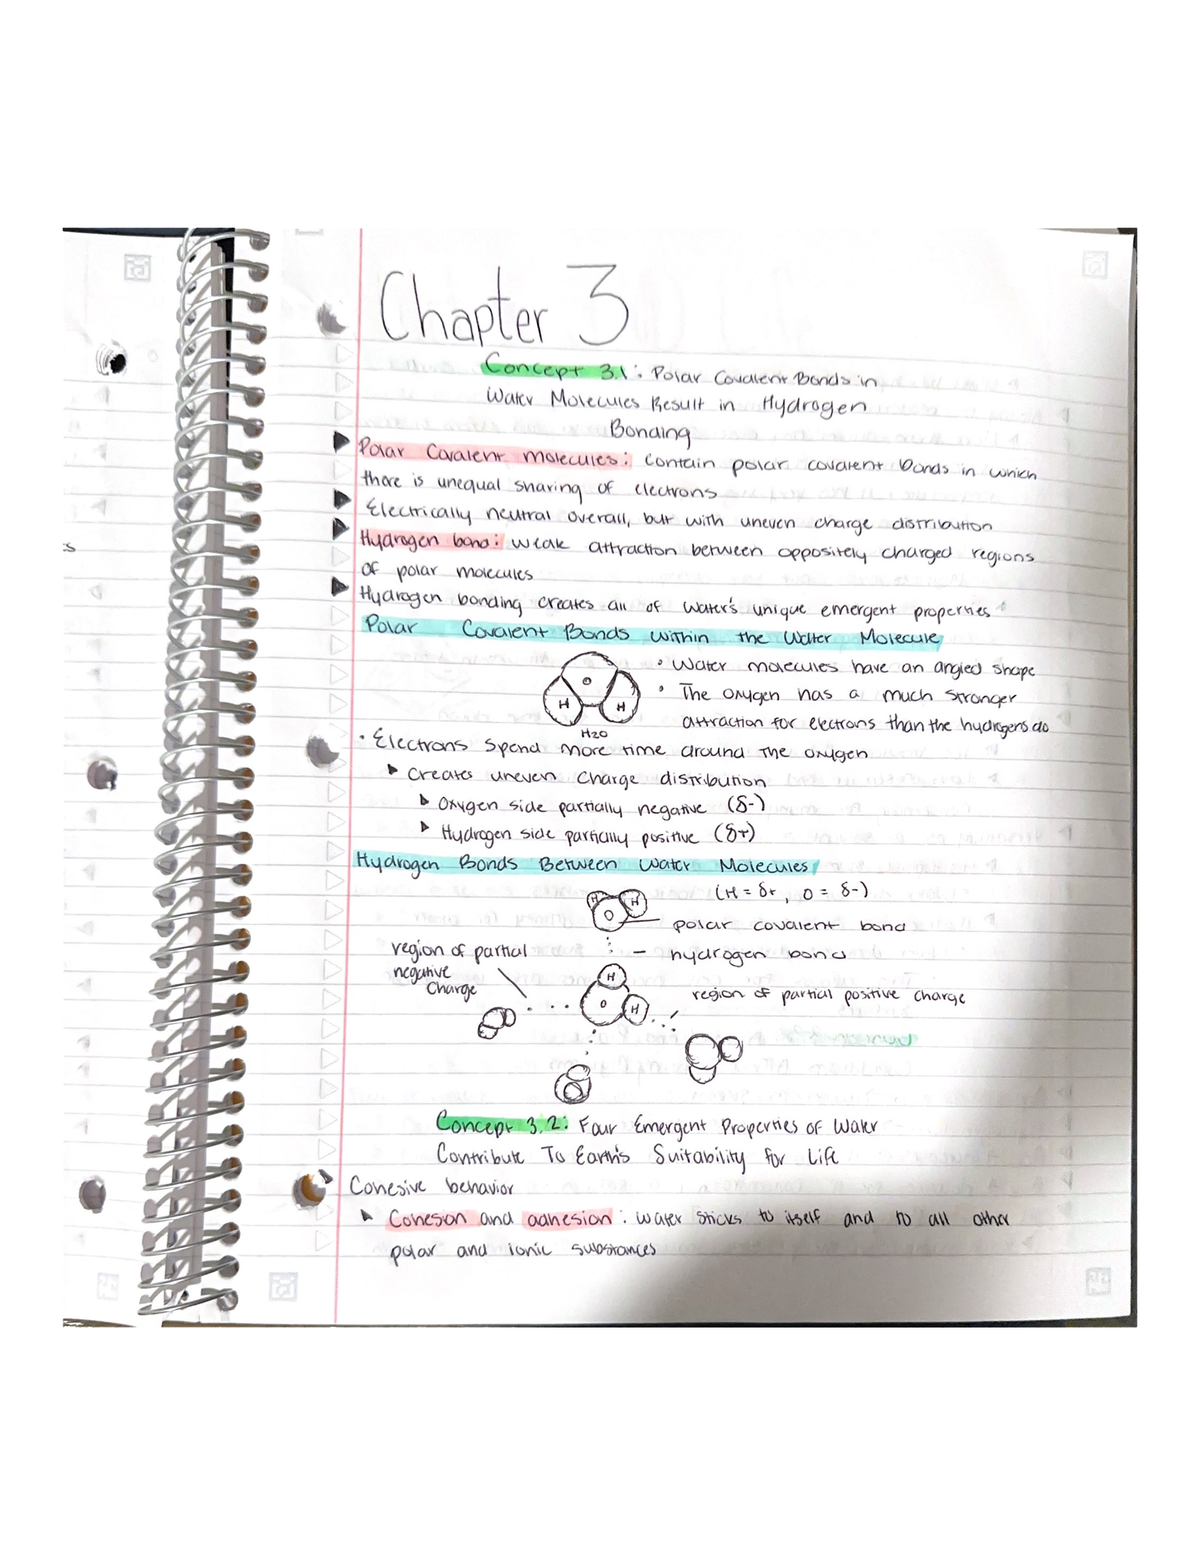 Chapter 3
Concept 3.1: Polar Covalent Bonds in
Water Molecules Result in Hydrogen
Bonding
Polar Covalent molecules: contain polar covalent bonds in which
there is unequal sharing of electrons
Electrically neutral overall, but with uneven charge distribution
Hydrogen bond: weak attraction between oppositely charged regions
of polar molecules
Hydrogen bonding creates all of water's unique emergent properties
Polar Covalent Bonds within the Water Molecule
• Water molecules have an angled shape
• The oxygen has a much stronger
attraction for electrons than the hydrogens do
O
H H
H2O
• Electrons spend more time around the oxygen
Creates uneven charge distribution
Oxygen side partially negative (δ-)
Hydrogen side partially positive (δ+)
Hydrogen Bonds Between Water Molecules
(H = δ+, O = δ-)
H H
O
polar covalent bond
hydrogen bond
region of partial
negative
charge
H
O H
region of partial positive charge
Concept 3.2: Four Emergent Properties of Water
Contribute To Earth's Suitability for Life
Cohesive behavior
Coheson and adhesion: water sticks to itself and to all other
polar and ionic substances
s